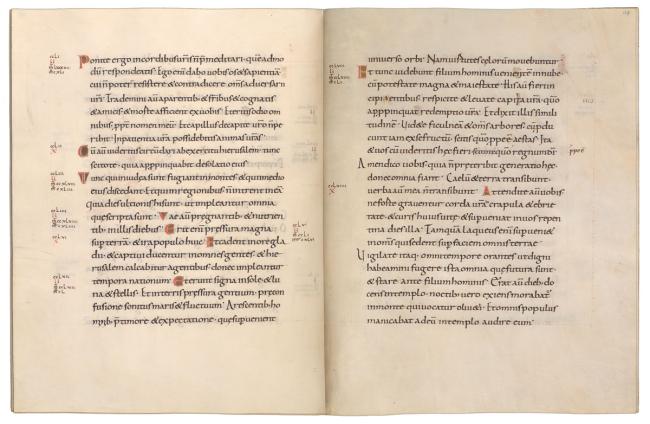 Ponite ergo incordibus uris n p̄meditari · quēadmo
dū respondeatis · Ego enī dabo uobis os & sapientiā
cui n poter̄ resistere & contradicere om̄s aduersarii
uri · Trademini aū aparentib · & fribus & cognatis
& amicis & morte afficient exuobis · Et eritis odio om
nibus ppt̄ nomen meū · Et capillus decapite uro n pe
ribit · Inpatientia ura possidebitis animas uras ·
Cū aū uideritis circūdari abexercitu hierusalem · tunc
scitote · quia appppinquabit desolatio eius ·
Tunc quiniudaea sunt fugiant inmontes · & quinmedio
eius discedant · Et quin regionibus n intrent ineā
quia dies ultionis hi sunt · ut impleantur omnia
quescripta sunt · Vae aū pregnantib · & nutrien
tib · inillis diebus · Erit enī pressura magna
sup terrā · & ira populo huic · Et cadent inore gla
dii · & captiui ducentur inomnes gentes · & hie
rusalem calcabitur agentibus · donec impleantur
tempora nationum · Et erunt signa insole & lu
na & stellis · Et interris pressura gentium · prę con
fusione sonitus maris & fluctuum · Arescentib · ho
minib · p̄ timore & expectatione · quesupuenient
uniuerso orbi · Nam uirtutes cęlorū mouebuntur ·
Et tunc uidebunt filium hominis uenientē innube
cū potestate magna & maiestate · His aū fieri in
cipientibus respicite & leuate capita ura · qūo
appppinquat redemptio ura · Et dixit illis simili
tudinē · Uidete ficulneā & om̄s arbores · cū pdu
cunt iam exse fructū · scitis quō ppe ē aestas · Ita
& uos cū uideritis hec fieri · scitote quō ppe ē regnū di
Amen dico uobis · quia n preteribit generatio hec
donec omnia fiant · Caelū & terra transibunt ·
uerba aū mea n transibunt · Attendite aū uobis
neforte grauentur corda ura incrapula & ebrie
tate · & curis huius uitę · & supueniat inuos repen
tina dies illa · Tamquā laqueus enī supueniet
inom̄s qui sedent sup faciem omnis terrae ·
Uigilate itaq; omni tempore orantes · ut digni
habeamini fugere ista omnia que futura sunt ·
& stare ante filium hominis · Erat aū dieb · do
cens intemplo · noctib · uero exiens morabat̄
inmonte qui uocatur oliueti · Et omnis populus
manicabat ad eū intemplo audire eum ·